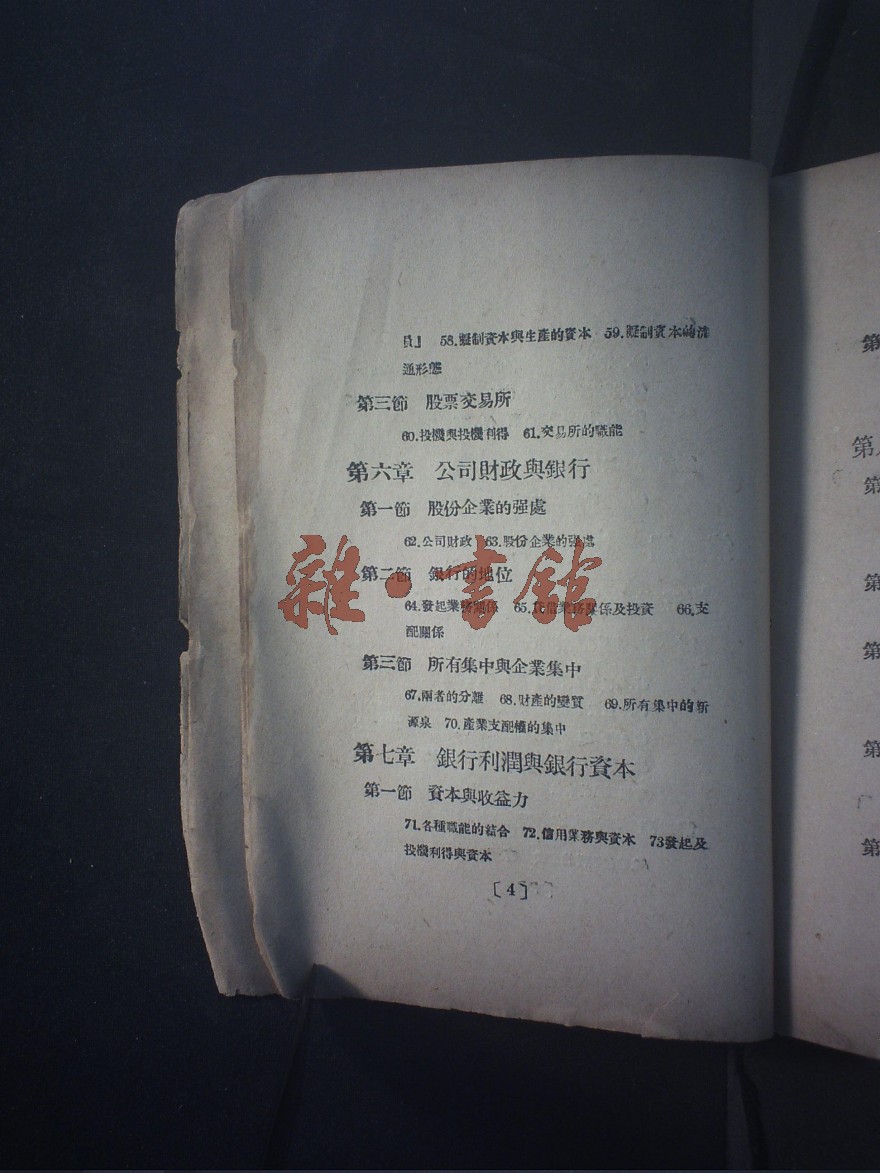 員』 58.擬制資本與生產的資本 59.擬制資本的流
通形態
第三節 股票交易所
60.投機與投機利得 61.交易所的職能
第六章 公司財政與銀行
第一節 股份企業的强處
62.公司財政 63.股份企業的强處
第二節 銀行的地位
64.發起業務關係 65.業務關係及投資 66.支
配關係
第三節 所有集中與企業集中
67.兩者的分離 68.財產的變質 69.所有集中的新
源泉 70.產業支配權的集中
第七章 銀行利潤與銀行資本
第一節 資本與收益力
71.各種職能的結合 72.信用業務與資本 73發起及
投機利得與資本
[4]
雜·書館
第
第
第
第
第
第
第